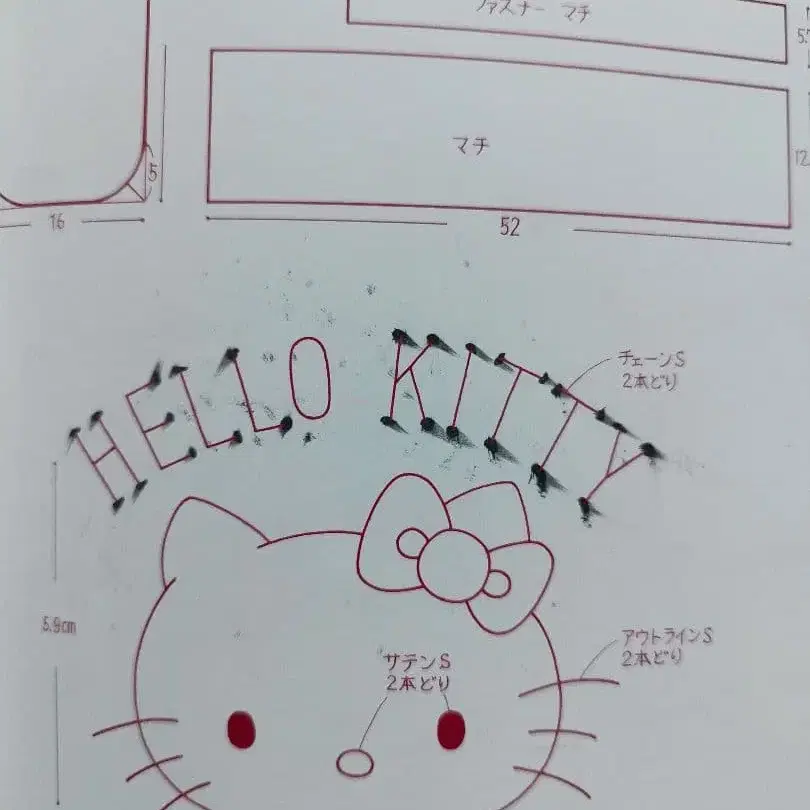 ファスナー マチ
マチ
5
16
52
HELLO KITTY
チェーンS
2本どり
5.9cm
アウトラインS
2本どり
サテンS
2本どり